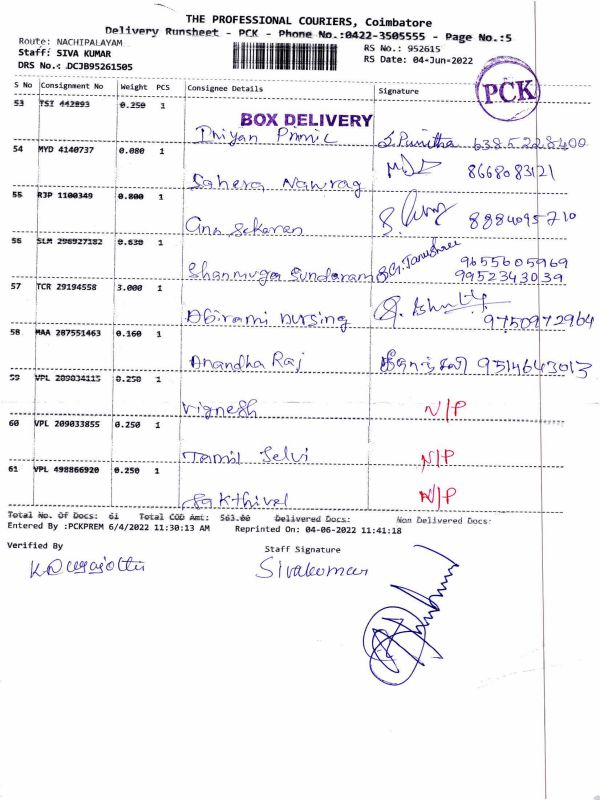 THE PROFESSIONAL COURIERS, Coimbatore
Delivery Runsheet - PCK - Phone No.:0422-3505555 - Page No.:5
Route: NACHIPALAYAM
Staff: SIVA KUMAR
DRS No.: .DCJB95261505
RS No.: 952615
RS Date: 04-Jun-2022
PCK
S No Consignment No Weight PCS Consignee Details Signature
BOX DELIVERY
53 TSI 442893 0.250 1
Iniyan S. Punitha 6385228400
54 MYD 4140737 0.080 1
Sahera Nawrag 8668083121
55 RJP 1100349 0.800 1
Gna Sekaran 8884095210
56 SLM 298927182 0.630 1
Shanmuga Sundaram S.G.Tanushree 9655605969
9952343039
57 TCR 29194558 3.000 1
Abirami nursing 9750972964
58 MAA 287551463 0.160 1
Anandha Raj 9514643013
59 VPL 209034115 0.250 1
Vignesh N/P
60 VPL 209033855 0.250 1
Tamil Selvi N/P
61 VPL 498866920 0.250 1
Sakthivel N/P
Total No. Of Docs: 61 Total COD Amt: 563.00 Delivered Docs: Non Delivered Docs:
Entered By :PCKPREM 6/4/2022 11:30:13 AM Reprinted On: 04-06-2022 11:41:18
Verified By
Staff Signature
Sivakumar